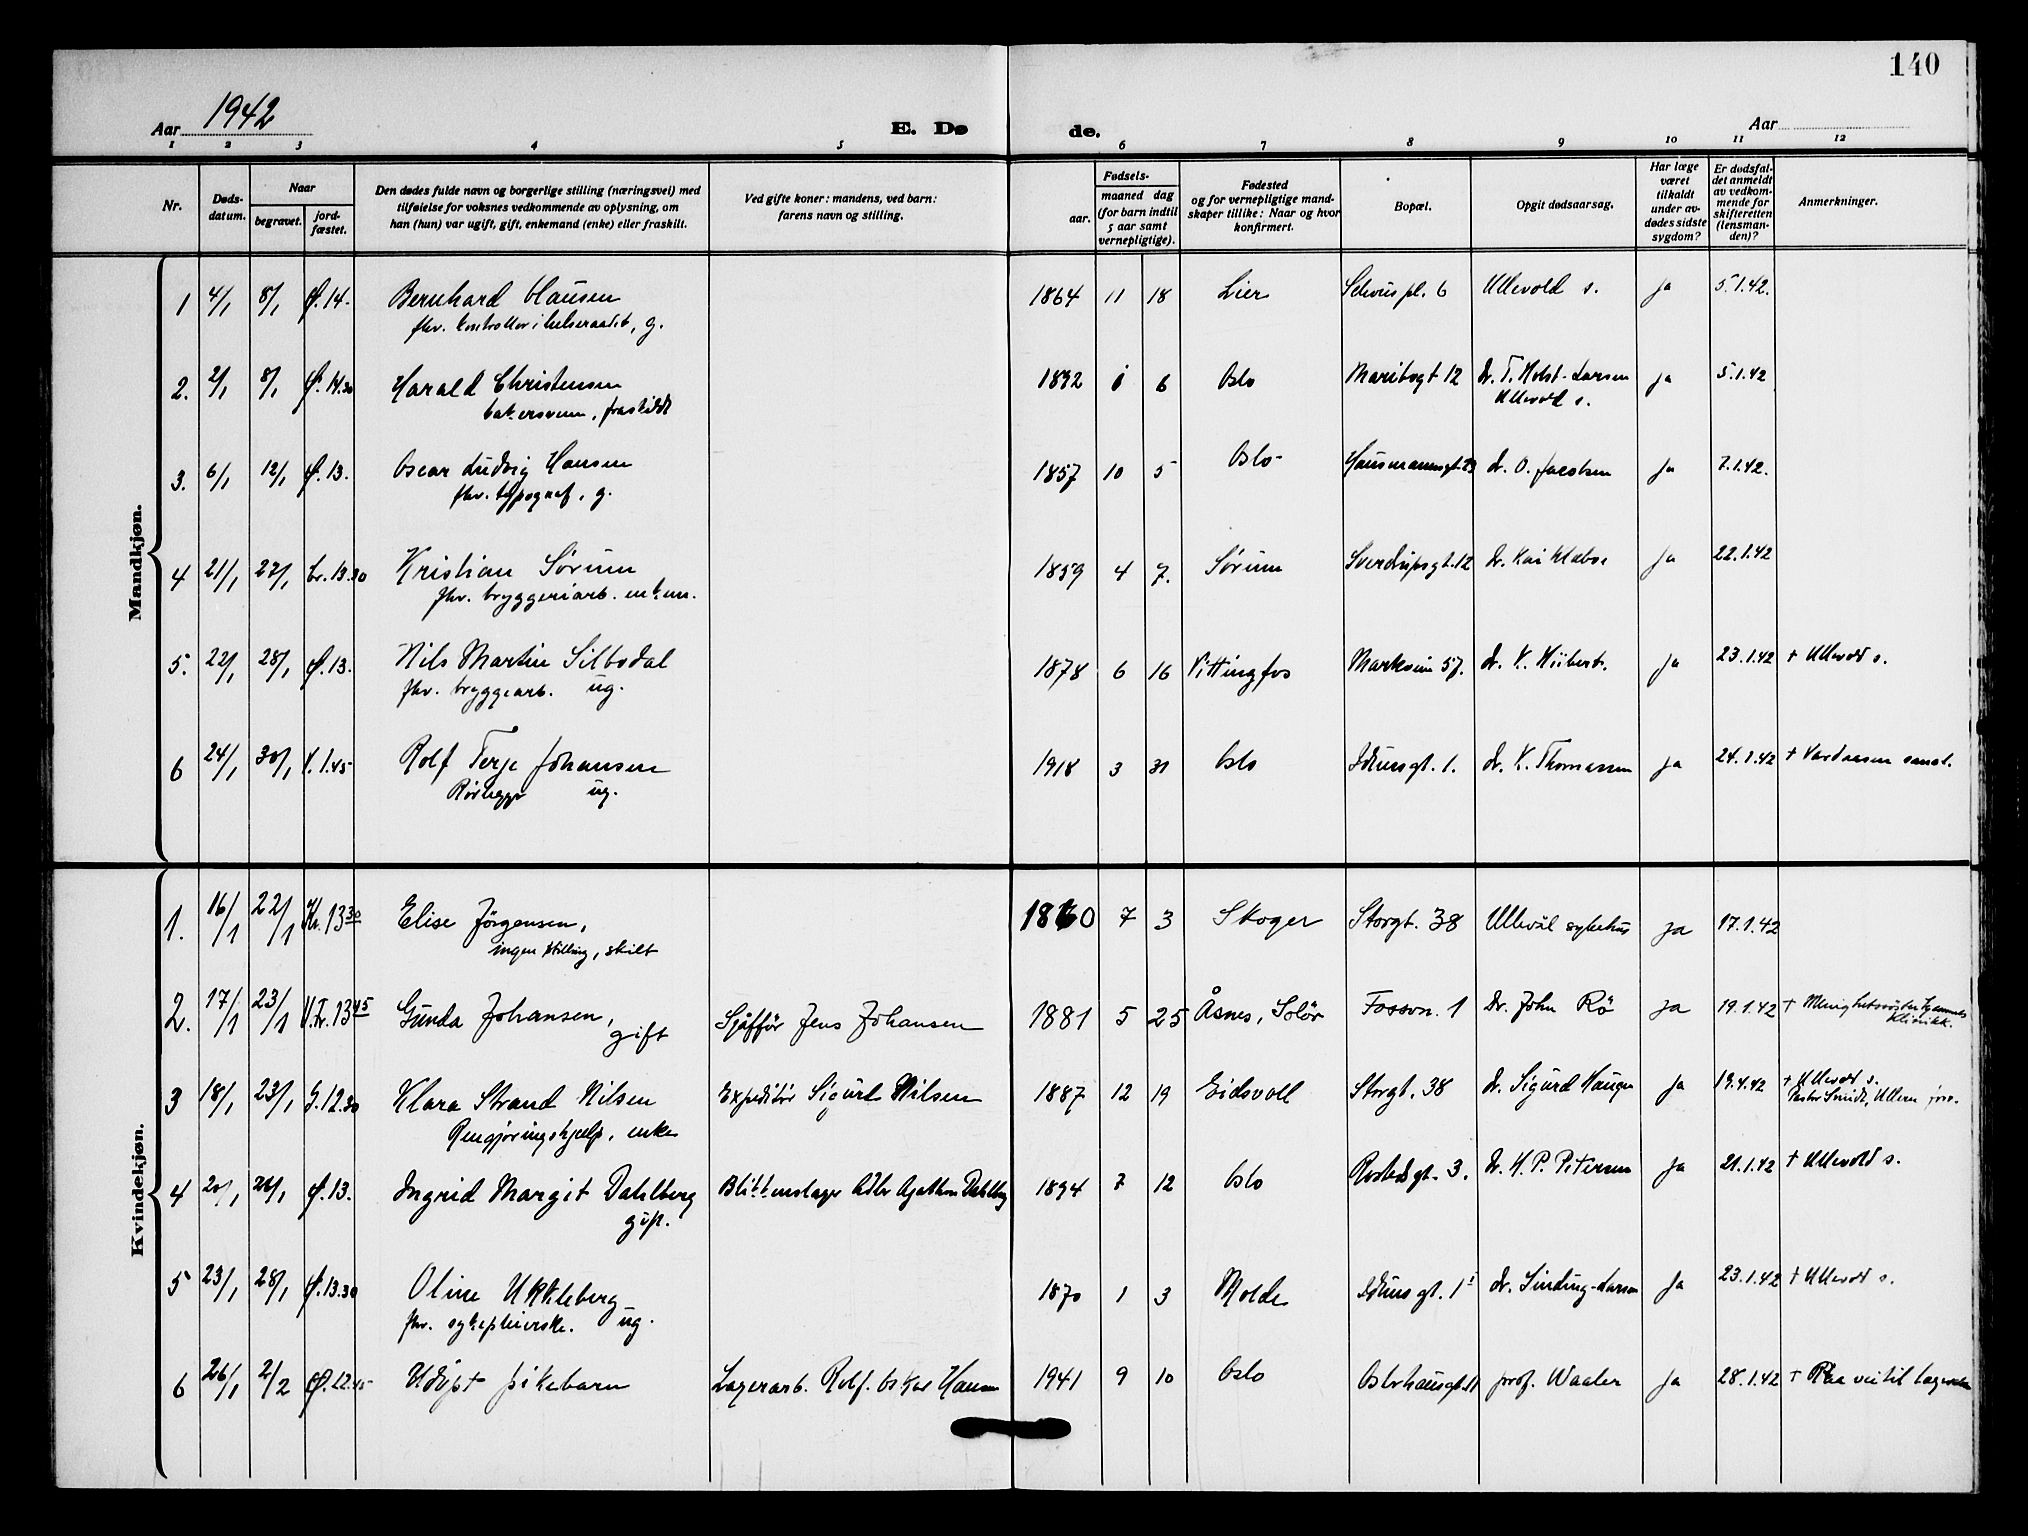 140
Aar 1942
E. Dø
de.
Aar
1 2 3 4 5 6 7 8 9 10 11 12
Nr.
Døds-
datum.
Naar
begravet.
jord-
fæstet.
Den dødes fulde navn og borgerlige stilling (næringsvei) med
tilføielse for voksnes vedkommende av oplysning, om
han (hun) var ugift, gift, enkemand (enke) eller fraskilt.
Ved gifte koner: mandens, ved barn:
farens navn og stilling.
Fødsels-
aar.
maaned dag
(for barn indtil
5 aar samt
vernepligtige).
Fødested
og for vernepligtige mand-
skaper tillike: Naar og hvor
konfirmert.
Bopæl.
Opgit dødsaarsag.
Har læge
været
tilkaldt
under av-
dødes sidste
sygdom?
Er dødsfal-
det anmeldt
av vedkom-
mende for
skifteretten
(lensman-
den)?
Anmerkninger.
Mandkjøn.
1 4/1 8/1 Ø.14. Bernhard Clausen 1864 11 18 Lier Schous pl. 6 Ullevold s. ja 5.1.42.
fhv. kontrollør i helseraadet, g.
2. 2/1 8/1 Ø.14.30 Harald Christensen 1892 6 Oslo Maribogt 12 Dr. T. Holst-Larsen ja 5.1.42
bakersvenn, fraskildt Ullevold s.
3. 6/1 12/1 Ø.13. Oscar Ludvig Hansen 1857 10 5 Oslo Hausmannsgt. 23 dr. O. Jacobsen ja 7.1.42.
fhv. typograf, g.
4 21/1 27/1 Cr.13.30 Kristian Sørum 1859 4 7. Sørum Sverdrupsgt.12 dr. Kai Klæboe ja 22.1.42
fhv. bryggeriarb. enkem.
5. 22/1 28/1 Ø.13. Nils Martin Silbodal 1878 6 16 Vittingfos Markveien 57. dr. K. ja 23.1.42 + Ullevold s.
fhv. bryggearb. ug.
6 24/1 30/1 V.1.45 Rolf Terje Johansen 1918 3 31 Oslo Idunsgt. 1. dr. K. Thomassen ja 24.1.42 + Vardaasen sanat.
Rørlegger ug.
Kvindekjøn.
1. 16/1 22/1 Kr.13 30 Elise Jörgensen, 1860 7 3 Skoger Storgt. 38 Ullevål sykehus ja 17.1.42
ingen stilling, skilt
2. 17/1 23/1 V.Kr.13 45 Gunda Johansen, gift Sjåfför Jens Johansen 1881 5 25 Åsnes, Solör Fossvn. 1 Dr. John Rö ja 19.1.42 + Menighetssösterhjemmets
Klinikk.
3 18/1 23/1 G.12.30 Klara Strand Nilsen Expeditör Sigurd Nilsen 1887 12 19 Eidsvoll Storgt. 38 dr. Sigurd Hauger ja 19.1.42 + Ullevold s.
Rengjøringshjelp, enke Pastor Smidt, Ullern forr.
4 20/1 26/1 Ø.13. Ingrid Margit Dahlberg Blikkenslager Adler Agathon Dahlberg 1894 7 12 Oslo Rostedsgt. 3. Dr. H. P. Petersen ja 21.1.42 + Ullevold s.
gift.
5 23/1 28/1 Ø.13.30 Oline Ukkleberg 1870 1 3 Molde Idunsgt. 1 dr. Sinding-Larsen ja 23.1.42 + Ullevold s.
fhv. sykepleierske. ug.
6 26/1 2/2 Ø.12.45 Udöpt pikebarn Lagerarb. Rolf Oskar Hansen 1941 9 10 Oslo Osterhausgt. 11 prof. Waaler ja 28.1.42 + Paa vei til